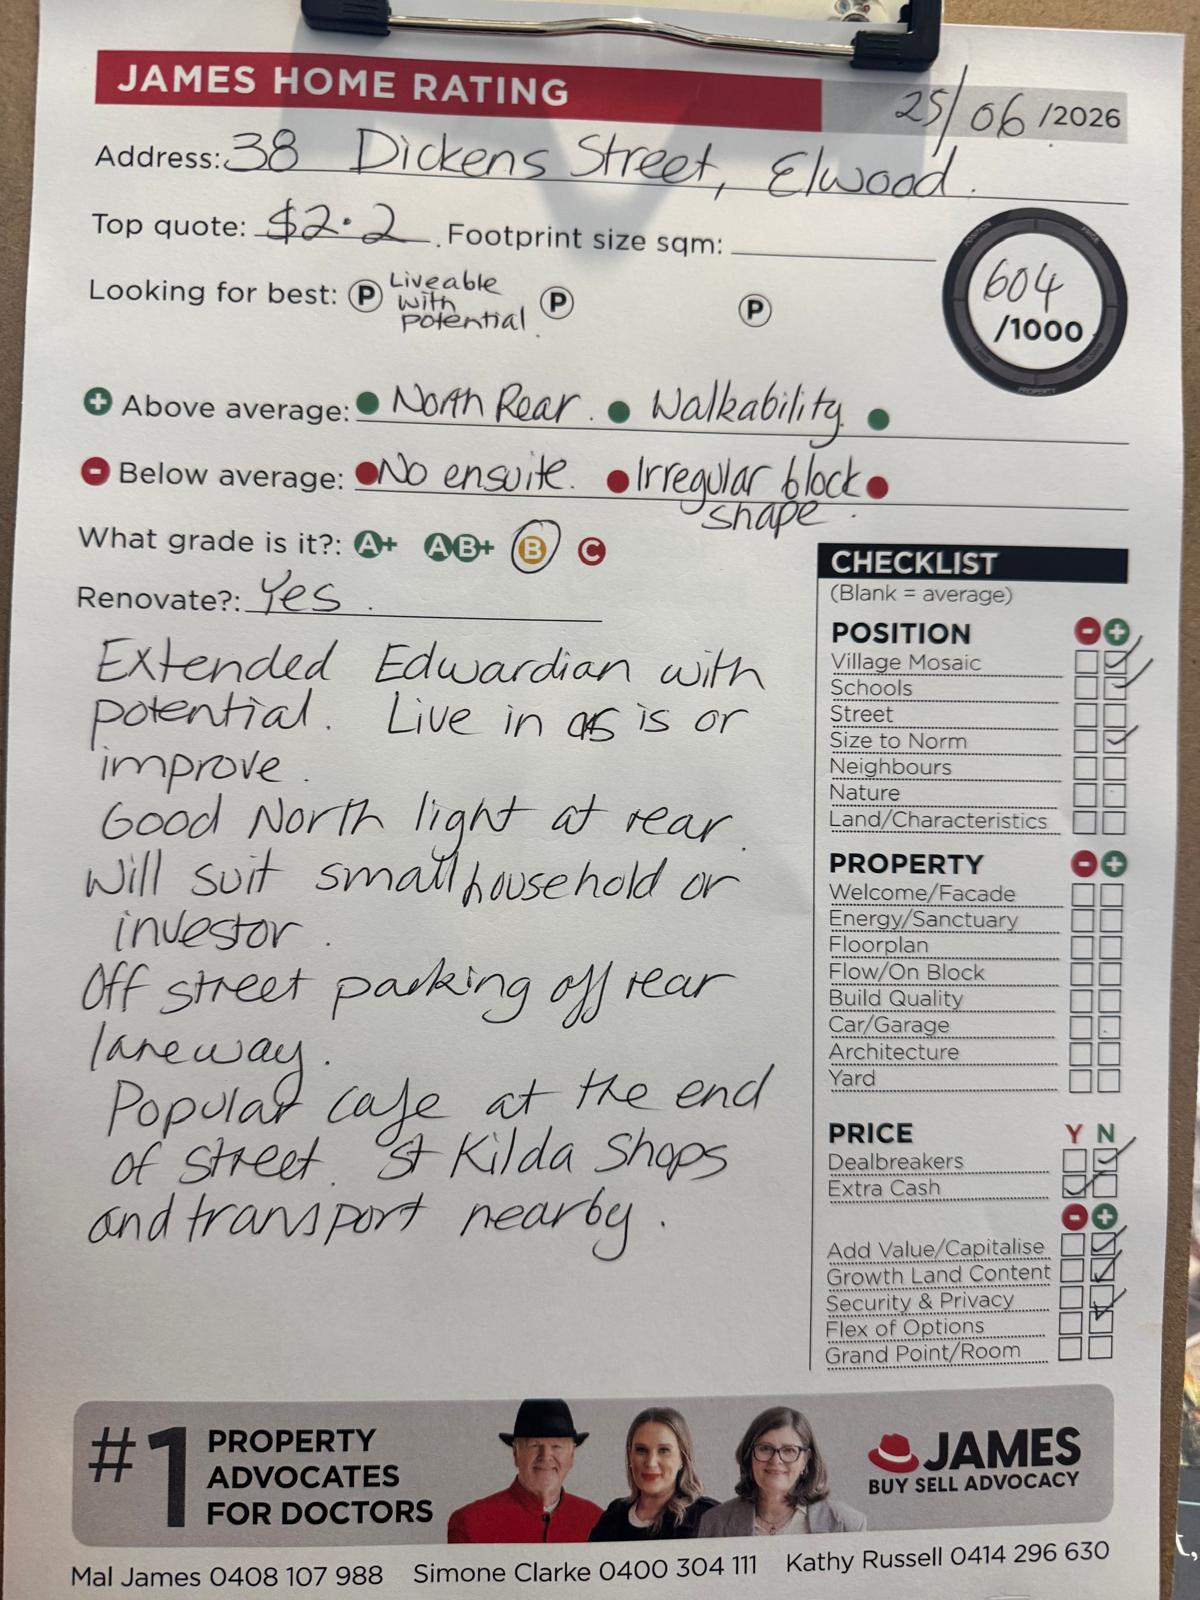 JAMES HOME RATING
25/06 /2026
Address: 38 Dickens Street, Elwood.
Top quote: $2.2. Footprint size sqm:
604
/1000
Looking for best: P Liveable with potential. P P
+ Above average: North Rear. Walkability.
- Below average: No ensuite. Irregular block shape.
What grade is it?: A+ AB+ B C
Renovate?: Yes.
Extended Edwardian with
potential. Live in as is or
improve.
Good North light at rear.
Will suit small household or
investor.
Off street parking off rear
laneway.
Popular cafe at the end
of street. St Kilda Shops
and transport nearby.
CHECKLIST
(Blank = average)
POSITION - +
Village Mosaic
Schools
Street
Size to Norm
Neighbours
Nature
Land/Characteristics
PROPERTY - +
Welcome/Facade
Energy/Sanctuary
Floorplan
Flow/On Block
Build Quality
Car/Garage
Architecture
Yard
PRICE Y N
Dealbreakers
Extra Cash
- +
Add Value/Capitalise
Growth Land Content
Security & Privacy
Flex of Options
Grand Point/Room
#1 PROPERTY
ADVOCATES
FOR DOCTORS
JAMES
BUY SELL ADVOCACY
Mal James 0408 107 988 Simone Clarke 0400 304 111 Kathy Russell 0414 296 630